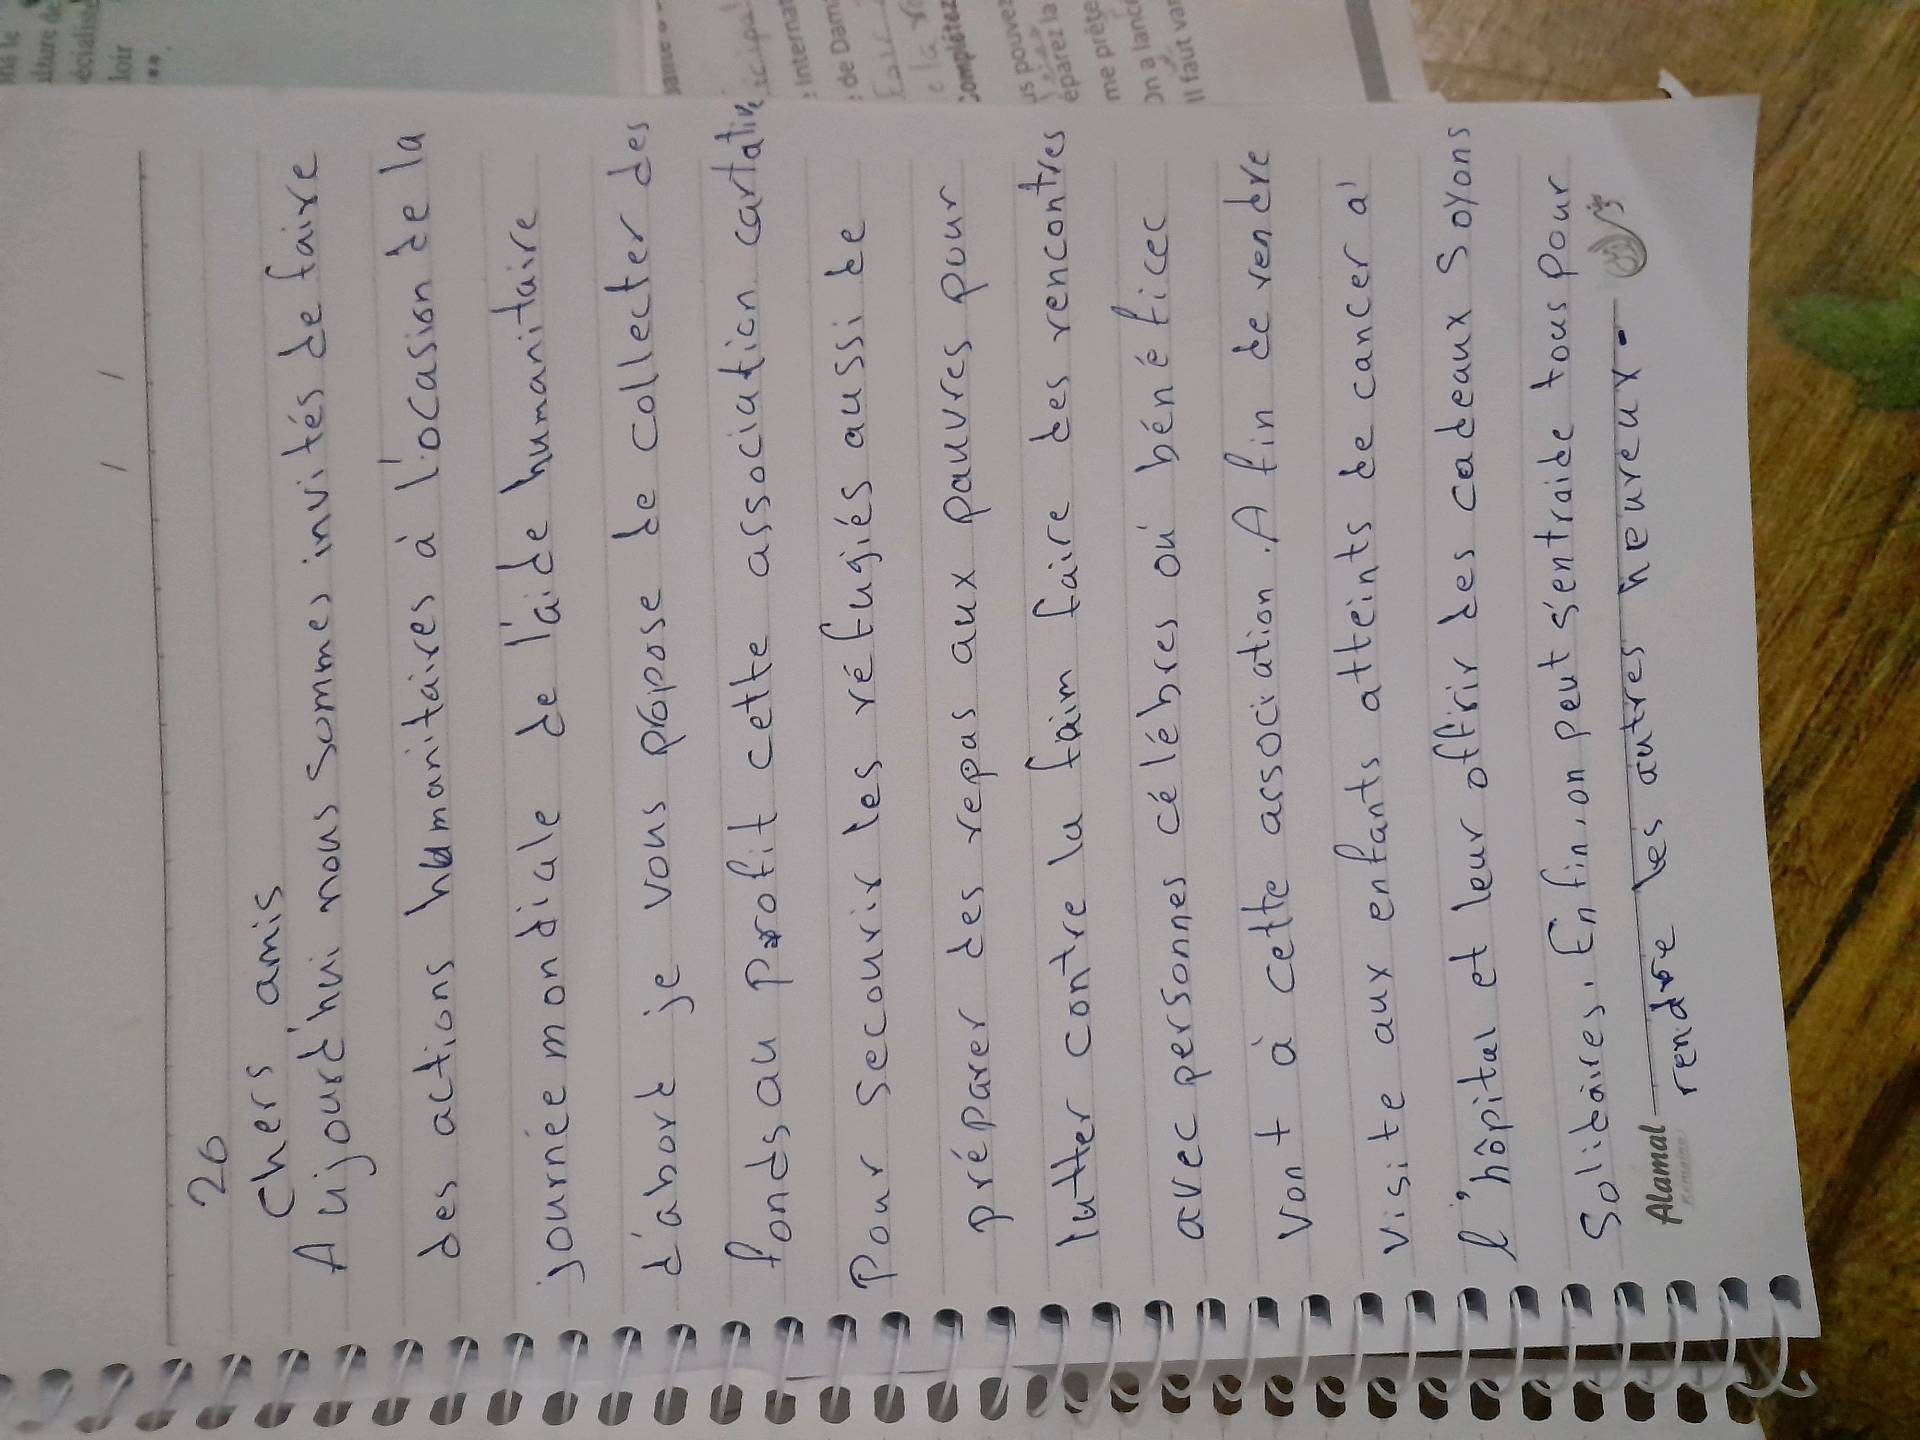 26
Chers amis
Aujourd'hui nous sommes invités de faire
des actions humanitaires à l'ocasion de la
journée mondiale de l'aide humanitaire
d'abord je vous propose de collecter des
fonds au profit cette association
Pour secourir les réfugiés aussi de
préparer des repas aux pauvres pour
lutter contre la faim faire des rencontres
avec personnes célèbres où bénéficec
vont à cette association. A fin de rendre
visite aux enfants atteints de cancer à
l'hôpital et leur offrir des cadeaux Soyons
Solidaires. Enfin, on peut s'entraide tous pour
rendre les autres heureux.
Alamal
ulture de
écialisé
loir
: Internat
: de Dam
Complétez
us pouvez
éparez la
me prête
On a lancé
Il faut var